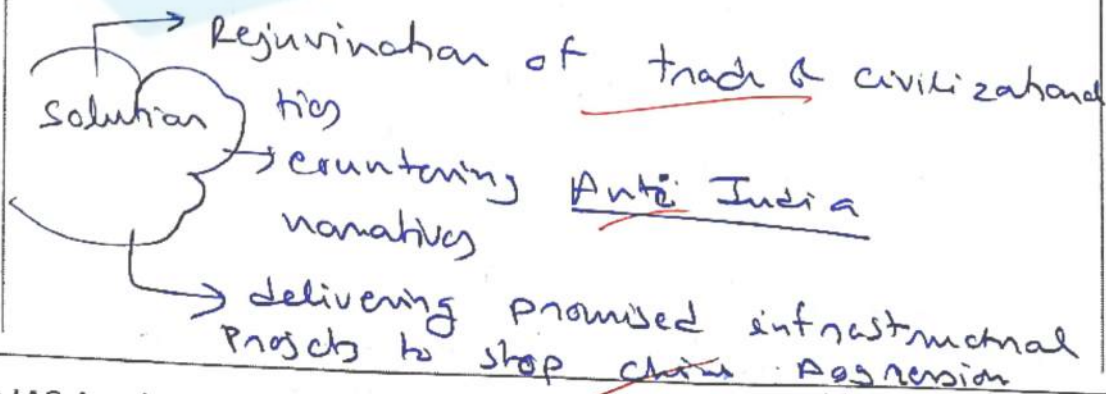 Rejuvination of trade & civilizational
Solution
ties
countering Anti India
narratives
delivering promised infrastructural
Projects to stop china Aggression